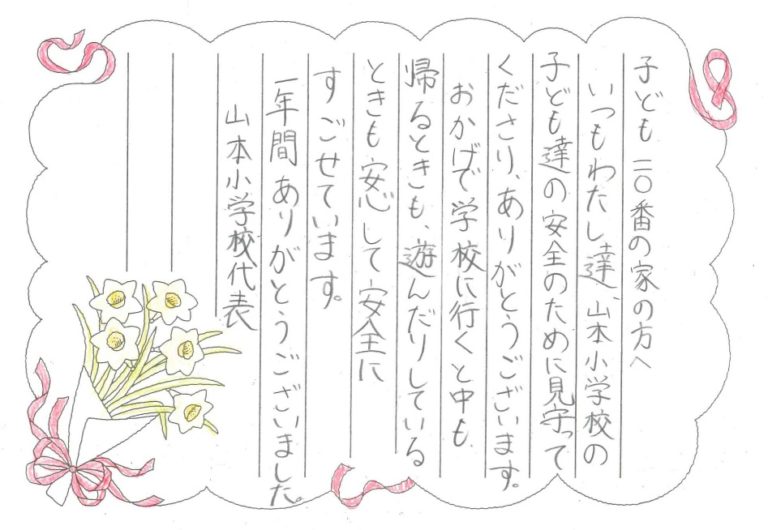 子ども一一〇番の家の方へ
いつもわたし達、山本小学校の
子ども達の安全のために見守って
くださり、ありがとうございます。
おかげで学校に行くと中も
帰るときも、遊んだりしている
ときも安心して安全に
すごせています。
一年間ありがとうございました。
山本小学校代表